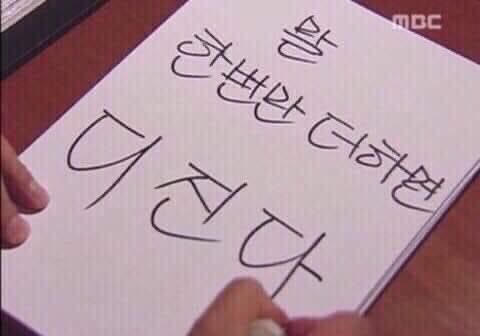 MBC
말
한번만 더하면
디진다